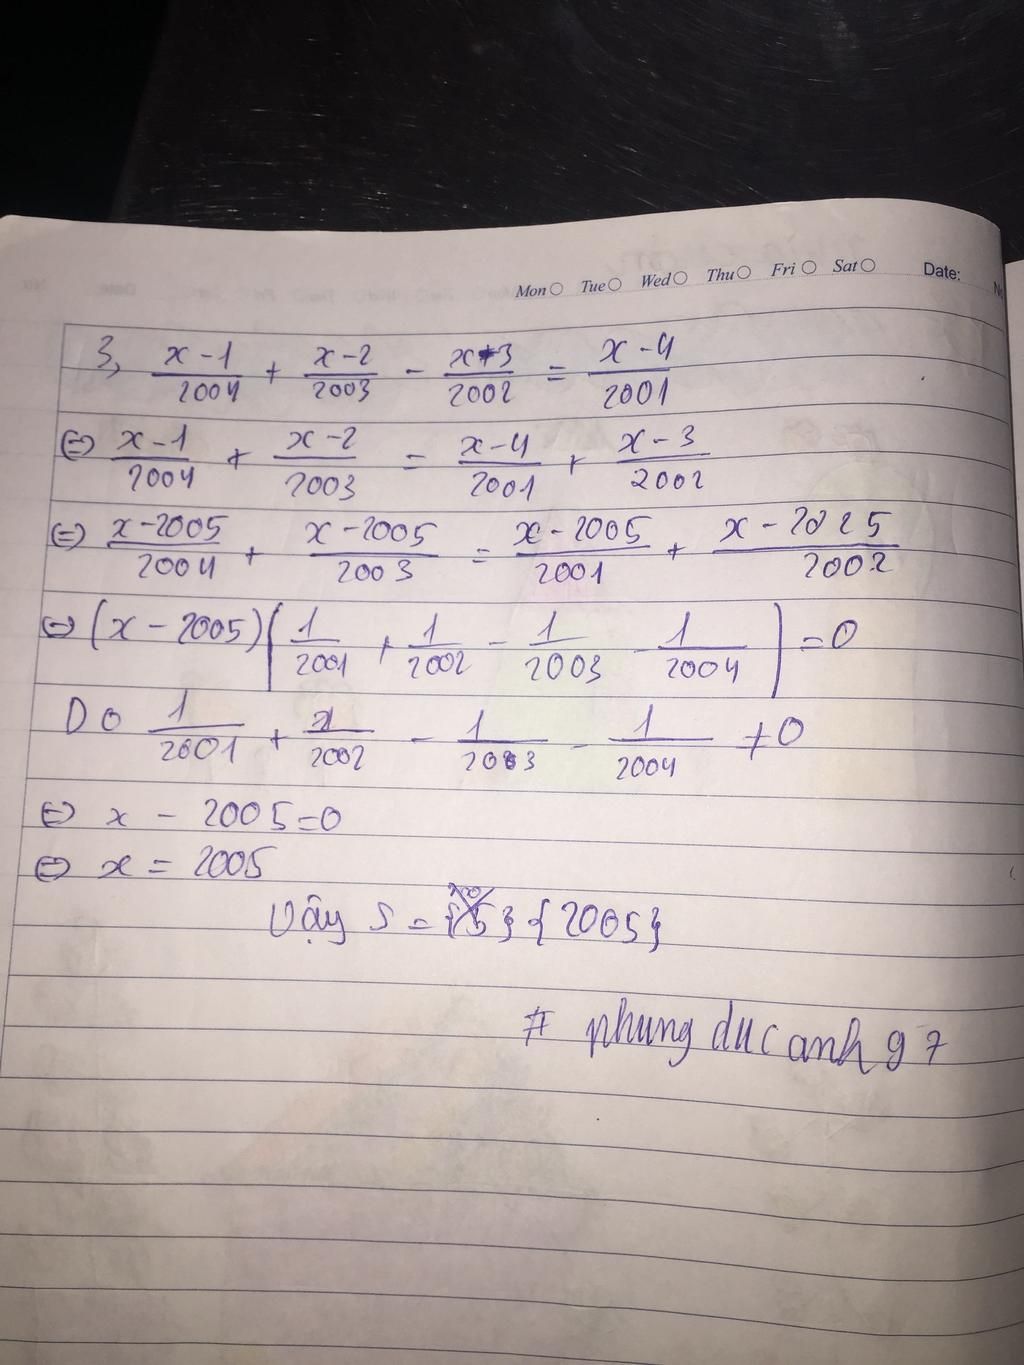 Mon Tue Wed Thu Fri Sat Date:
3, x-1/2004 + x-2/2003 - x-3/2002 = x-4/2001
⇔ x-1/2004 + x-2/2003 = x-4/2001 + x-3/2002
⇔ x-2005/2004 + x-2005/2003 = x-2005/2001 + x-2025/2002
⇔ (x-2005)(1/2001 + 1/2002 - 1/2003 - 1/2004) = 0
Do 1/2001 + 1/2002 - 1/2003 - 1/2004 ≠ 0
⇔ x - 2005 = 0
⇔ x = 2005
Vậy S = {2005}
# phung duc anh 97